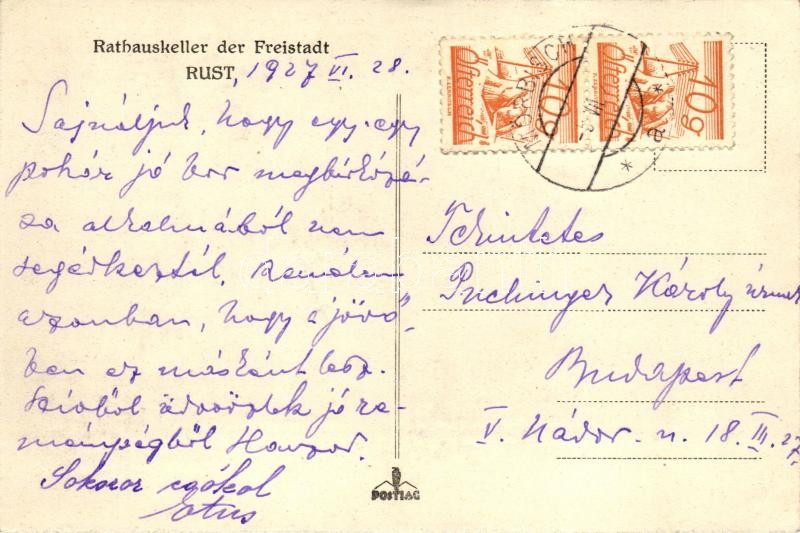 Rathauskeller der Freistadt
RUST, 1927 VI. 28.
Sajnáljuk, hogy egy-egy
pohár jó bor megbírkózá-
sa alkalmából nem
segédkeztél, Remélem
azonban, hogy a jövő-
ben ez másként lesz.
Szívből üdvözlek jó re-
ménységből
Sokszor csókol
Etus
Österreich
10g
Österreich
10g
MÖRBISCH
Tekintetes
Puchinger Károly úrnak
Budapest
V. Nádor. u. 18. III. 27.
POSTIAG